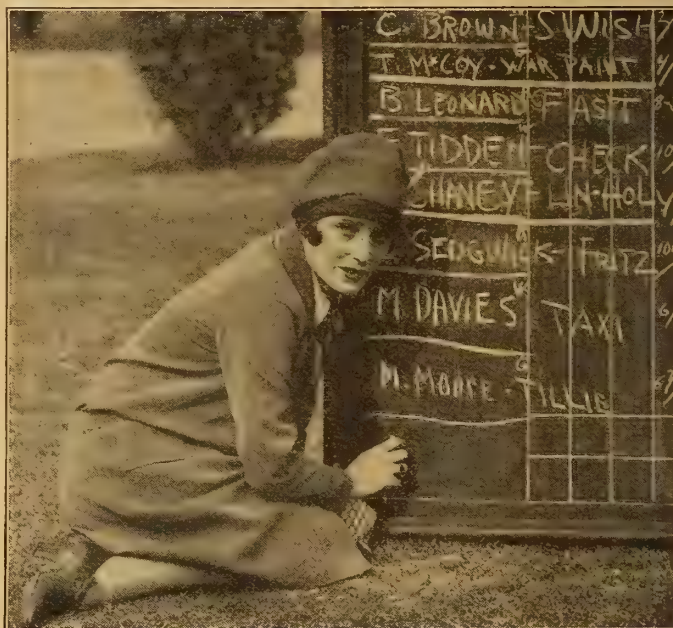 C. BROWN - SWISH 3/
T. McCOY - WAR PAINT 4/
B LEONARD FAST 8
TIDDEN - CHECK 10/
CHANEY FLIN-HOLY
SEDGWICK - FRITZ 100
M. DAVIES TAXI 6/
M. MOORE - TILLIE